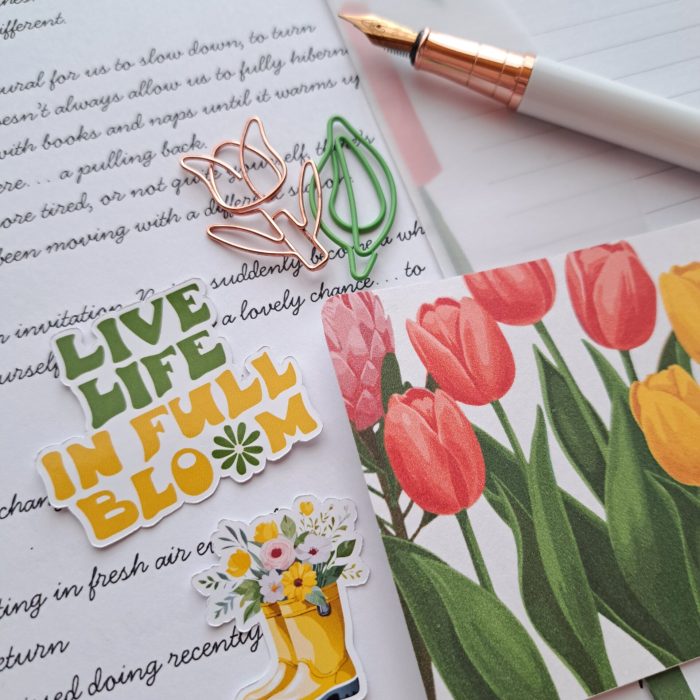 different.
ural for us to slow down, to turn
oesn't always allow us to fully hiberna
with books and naps until it warms up
ere... a pulling back.
ore tired, or not quite yourself, there's
been moving with a different season.
suddenly become a wh
n invitation
a lovely chance... to
urself
LIVE
LIFE
IN FULL
BLOOM
chan
ting in fresh air
eturn
doing recently